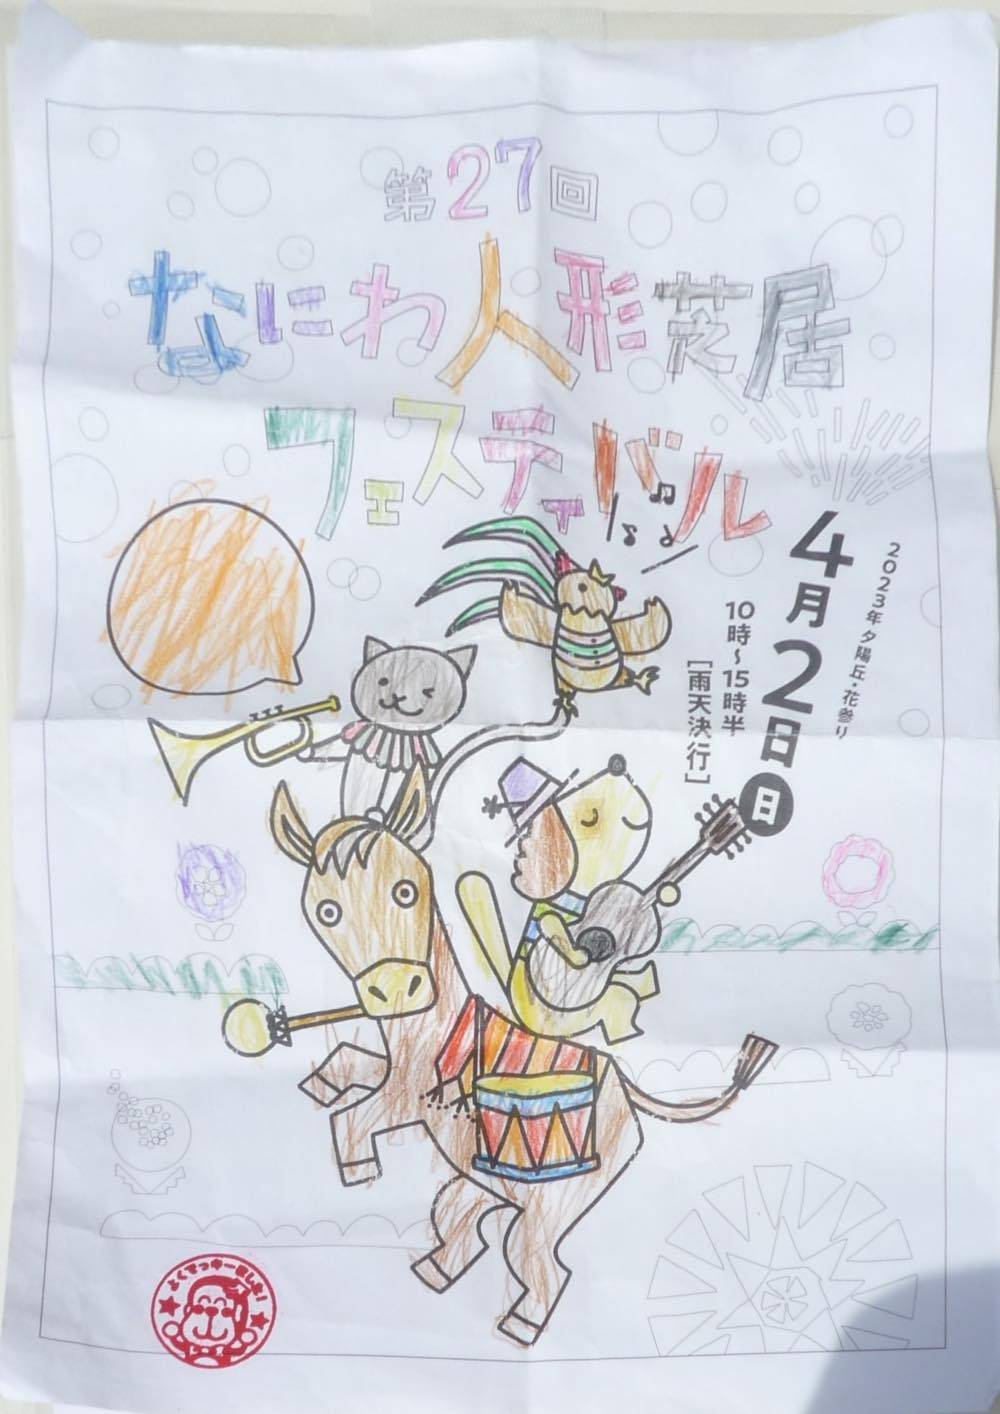 第27回
なにわ人形芝居
フェスティバル
2023年 夕陽丘・花参り
4月2日日
10時〜15時半
[雨天決行]